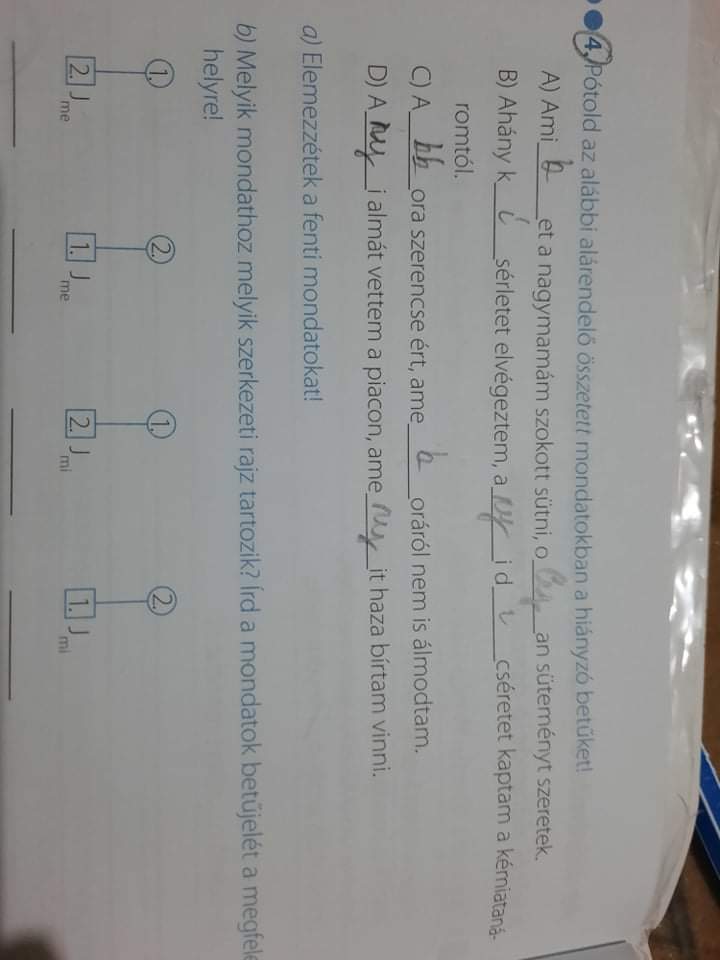 4. Pótold az alábbi alárendelő összetett mondatokban a hiányzó betűket!
A) Ami k et a nagymamám szokott sütni, o ly an süteményt szeretek.
B) Ahány k í sérletet elvégeztem, a ny i d i cséretet kaptam a kémiataná-
romtól.
C) A kk ora szerencse ért, ame k oráról nem is álmodtam.
D) A ny i almát vettem a piacon, ame ny it haza bírtam vinni.
a) Elemezzétek a fenti mondatokat!
b) Melyik mondathoz melyik szerkezeti rajz tartozik? Írd a mondatok betűjelét a megfele
helyre!
1. 2. 1. 2.
2. Jme 1. Jme 2. Jmi 1. Jmi